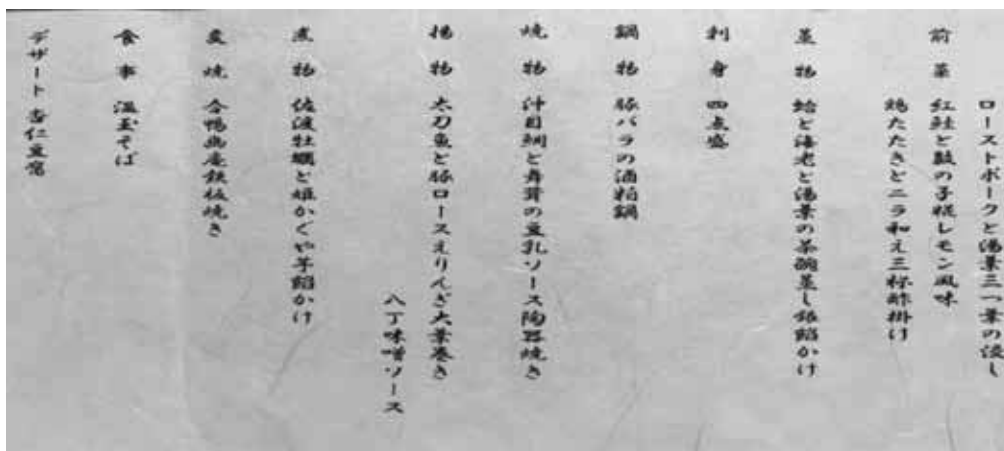 ローストポークと湯葉三ッ葉の浸し
前菜 紅鮭と数の子糀レモン風味
鶏たたきとニラ和え三杯酢掛け
蒸物 蛤と海老と湯葉の茶碗蒸し銀餡かけ
刺身 四点盛
鍋物 豚バラの酒粕鍋
焼物 沖目鯛と舞茸の豆乳ソース陶器焼き
揚物 太刀魚と豚ロースえりんぎ大葉巻き
八丁味噌ソース
煮物 佐渡牡蠣と姫かぐや芋餡かけ
変焼 合鴨幽庵鉄板焼き
食事 温玉そば
デザート 杏仁豆腐